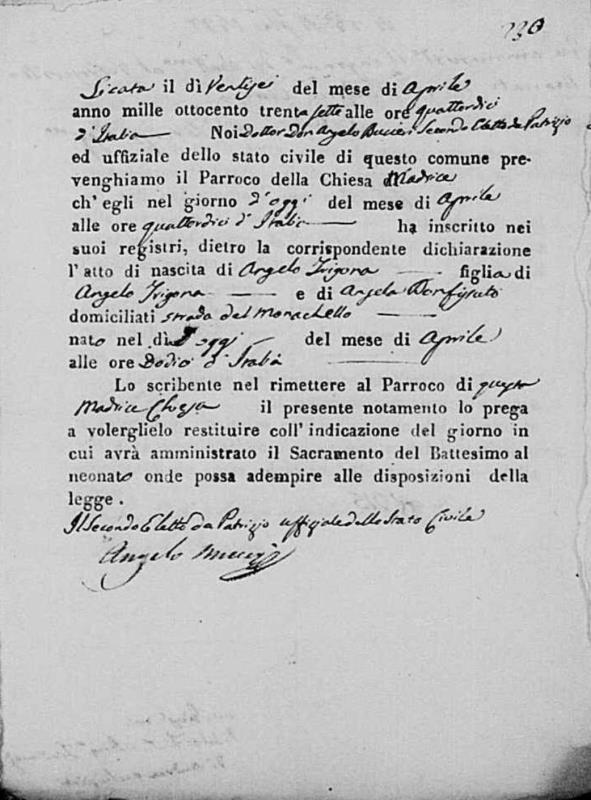 230
Licata il dì Ventisei del mese di Aprile
anno mille ottocento trenta sette alle ore quattordici
d'Italia Noi Dottor Don Angelo Secondo Eletto da Patrizio
ed uffiziale dello stato civile di questo comune pre-
venghiamo il Parroco della Chiesa Madrice
ch' egli nel giorno d'oggi del mese di Aprile
alle ore quattordici d'Italia ha inscritto nei
suoi registri, dietro la corrispondente dichiarazione
l'atto di nascita di Angelo Trigona figlia di
Angelo Trigona e di Angela Bonfissuto
domiciliati strada del Monachello
nato nel dì d'oggi del mese di Aprile
alle ore Dodici d'Italia
Lo scribente nel rimettere al Parroco di questa
Madrice Chiesa il presente notamento lo prega
a volerglielo restituire coll' indicazione del giorno in
cui avrà amministrato il Sacramento del Battesimo al
neonato onde possa adempire alle disposizioni della
legge .
Il Secondo Eletto da Patrizio uffiziale dello Stato Civile
Angelo